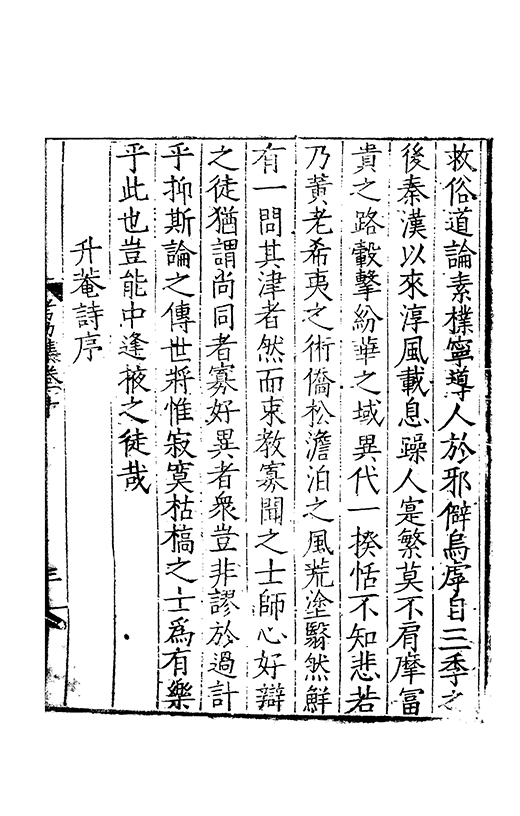 救俗道論素樸寧導人於邪僻烏虖自三季之
後秦漢以來淳風載息躁人寔繁莫不肩摩冨
貴之路轂擊紛華之域異代一揆恬不知悲若
乃黃老希夷之術僑松澹泊之風荒塗翳然鮮
有一問其津者然而束教寡聞之士師心好辯
之徒猶謂尚同者寡好異者衆豈非謬於過計
乎抑斯論之傳世將惟寂寞枯槁之士爲有樂
乎此也豈能中逢掖之徒哉
升菴詩序